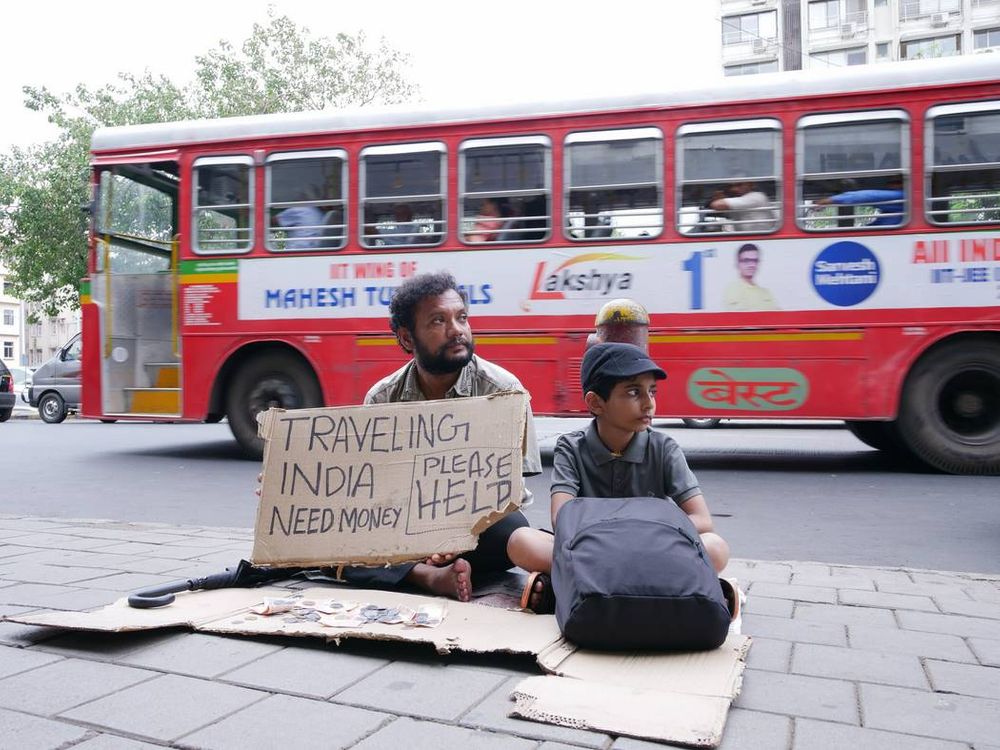 IIT WING OF
MAHESH TU
LS
Lakshya
1st
Sarvesh
Mehtani
All IND
IIT-JEE
बेस्ट
TRAVELING
INDIA
NEED MONEY
PLEASE
HELP